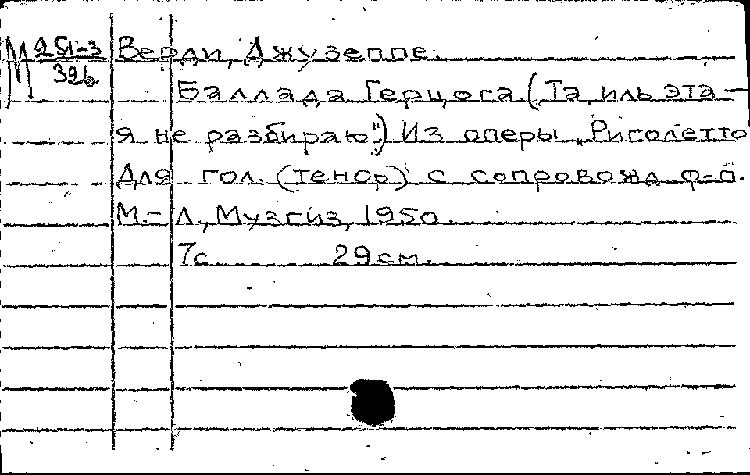 М 251-3 Верди, Джузеппе.
326
Баллада Герцога (Та иль эта –
я не разбираю") Из оперы „Риголетто
Для гол. (тенор) с сопровожд ф-п.
М.-Л., Музгиз, 1950.
7с. 29см.